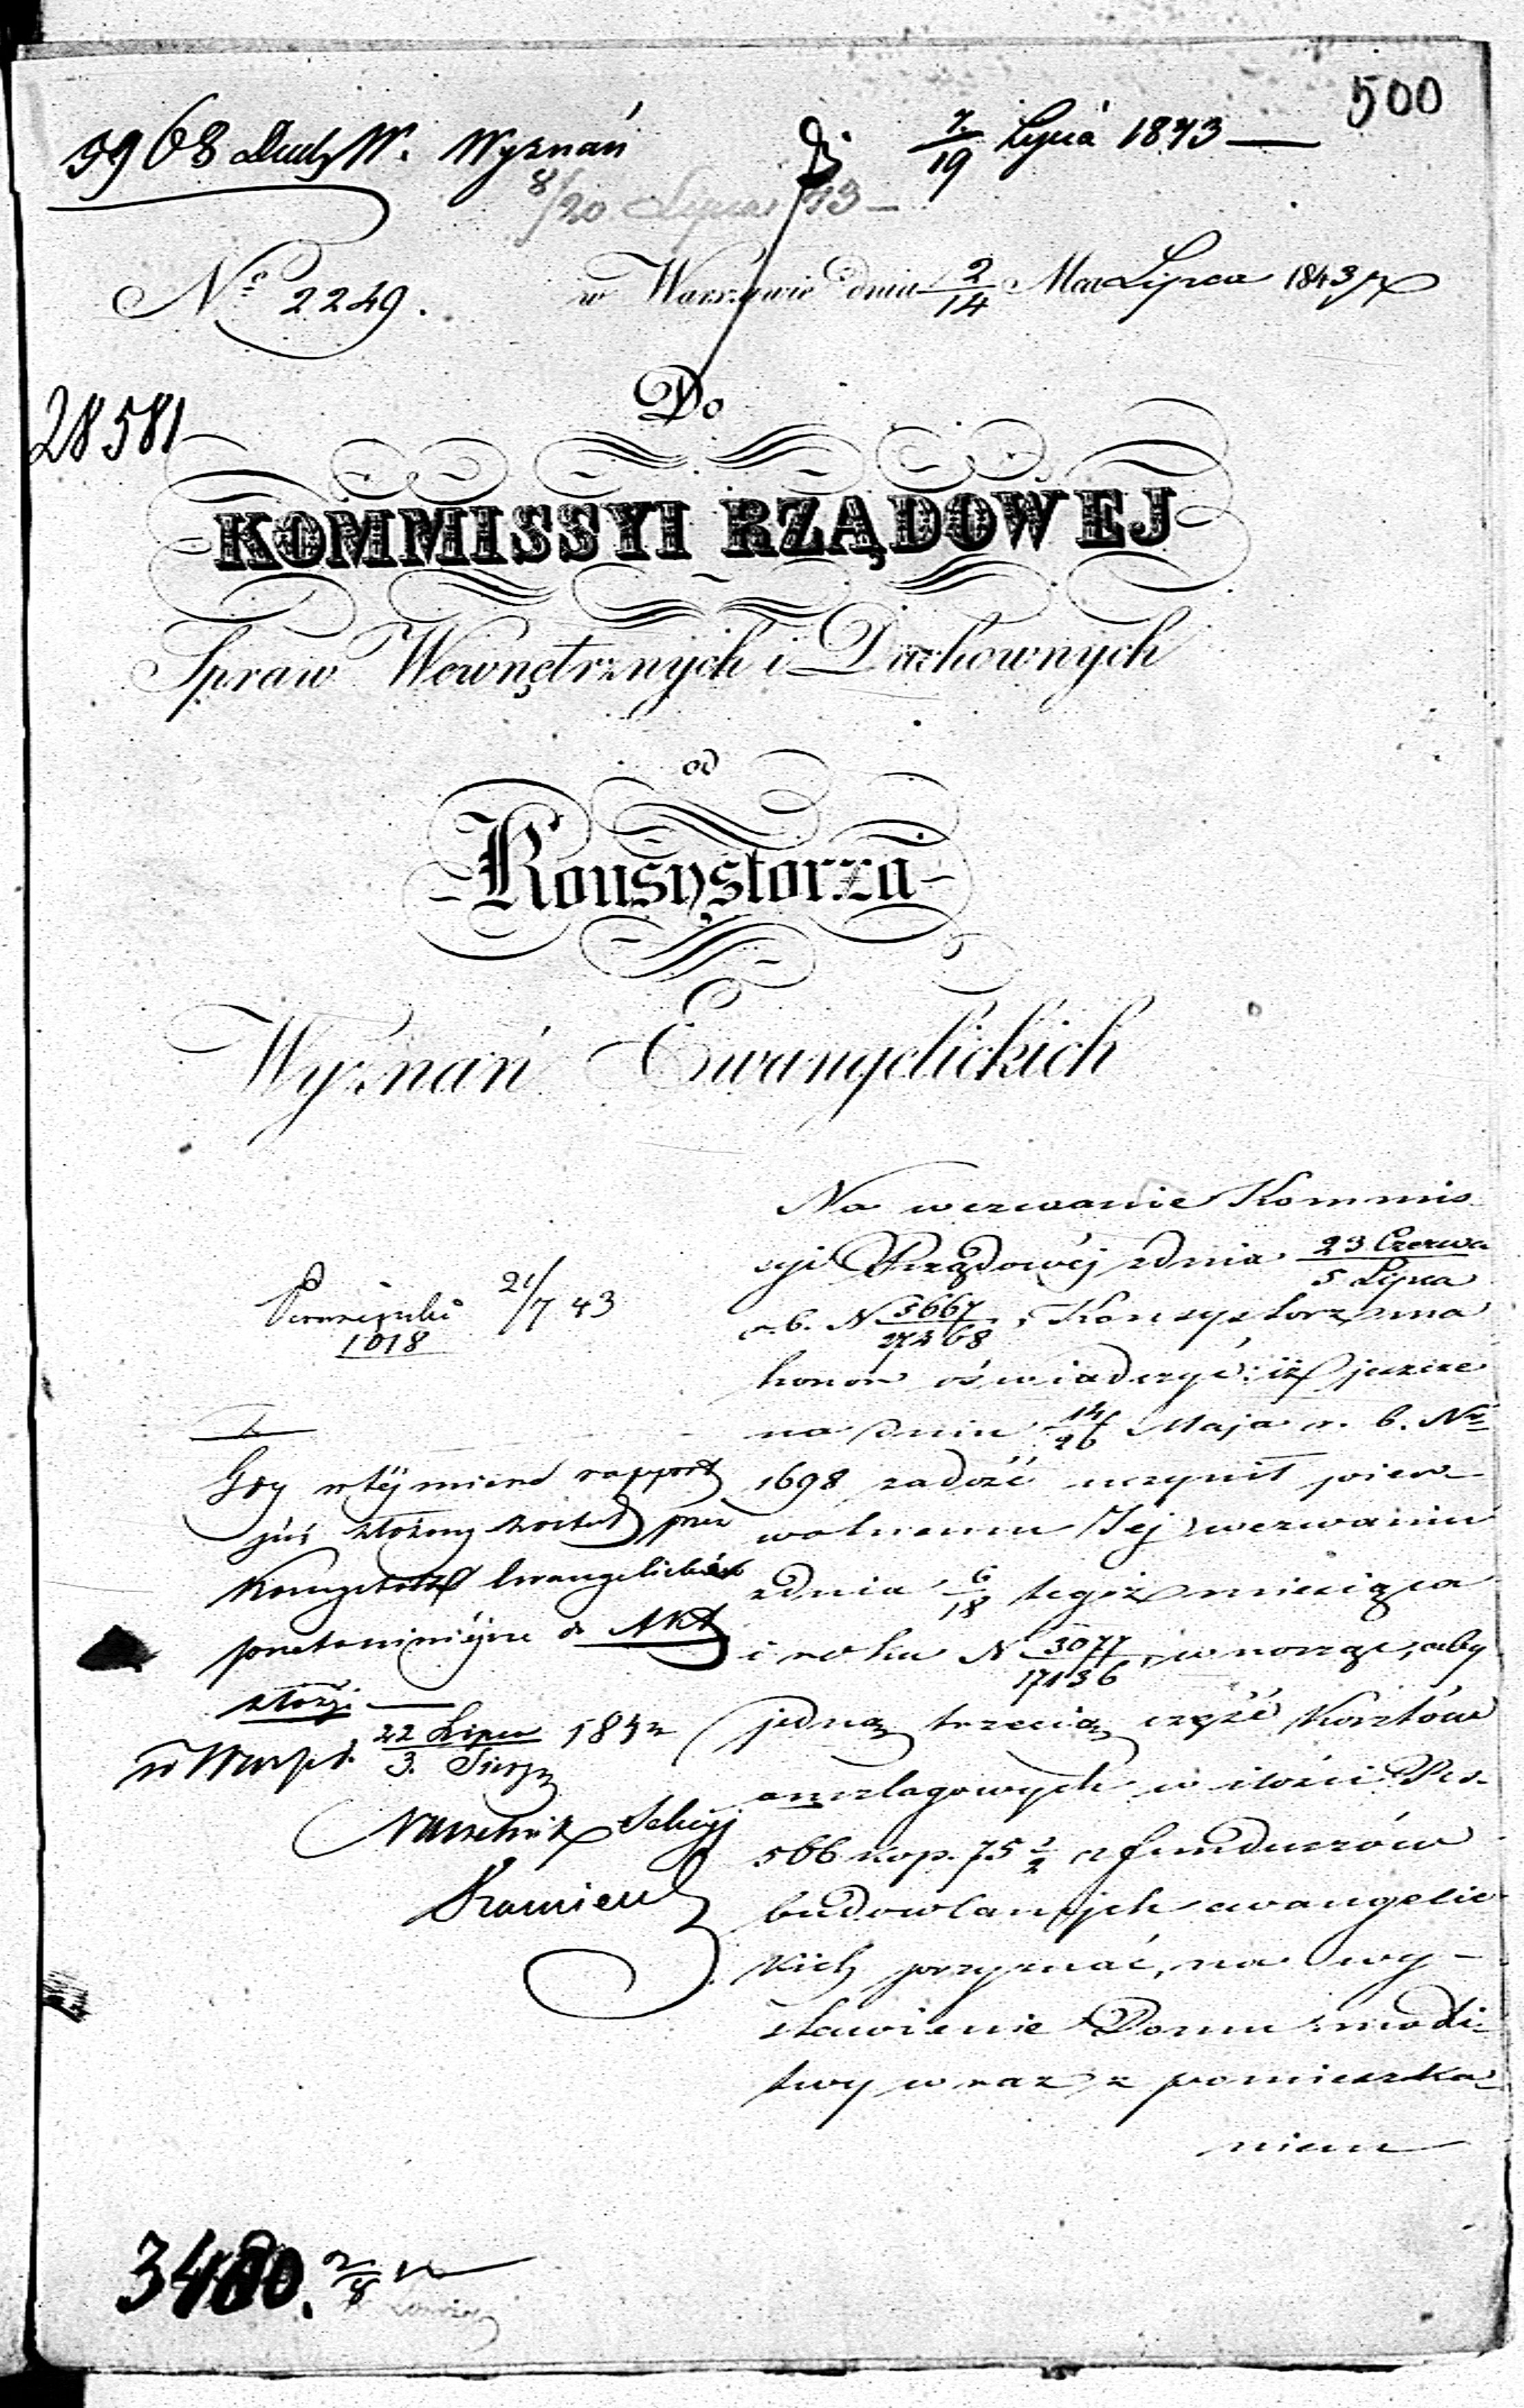 500
5968 Duch W. Wyznań
7/19 Lipca 1843
8/20 Lipca 43
Nº 2249.
w Warszawie dnia 2/14 Mca Lipca 1843 r.
28581
Do
KOMMISSYI RZĄDOWEJ
Spraw Wewnętrznych i Duchownych
od
Konsystorza
Wyznań Ewangelickich
21/7 43
1018
Gdy w téj mierze rapport
już złożony został przez
Konsystorz Ewangelicki
do Akt
złożyć
w Warsz. d. 22 Lipca / 3. Sierp 1843
Naczelnik Sekcyi
Na wezwanie Kommis-
syi Rządowéj z dnia 23 Czerwca / 5 Lipca
r. b. N 5667/27468, Konsystorz ma
honor oświadczyć: iż jeszcze
na dniu 14/26 Maja r. b. Nr
1698 zadość uczynił pier-
wotnemu Jej wezwaniu
z dnia 6/18 tegoż miesiąca
i roku N 3077/17136, wnosząc, aby
jedną trzecią część kosztów
anszlagowych w ilości Rs.
566 kop. 75 1/2 z funduszów
budowlanych ewangelic-
kich przyznać, na wy-
stawienie Domu modli-
twy wraz z pomieszka-
niem
3480. 2/8